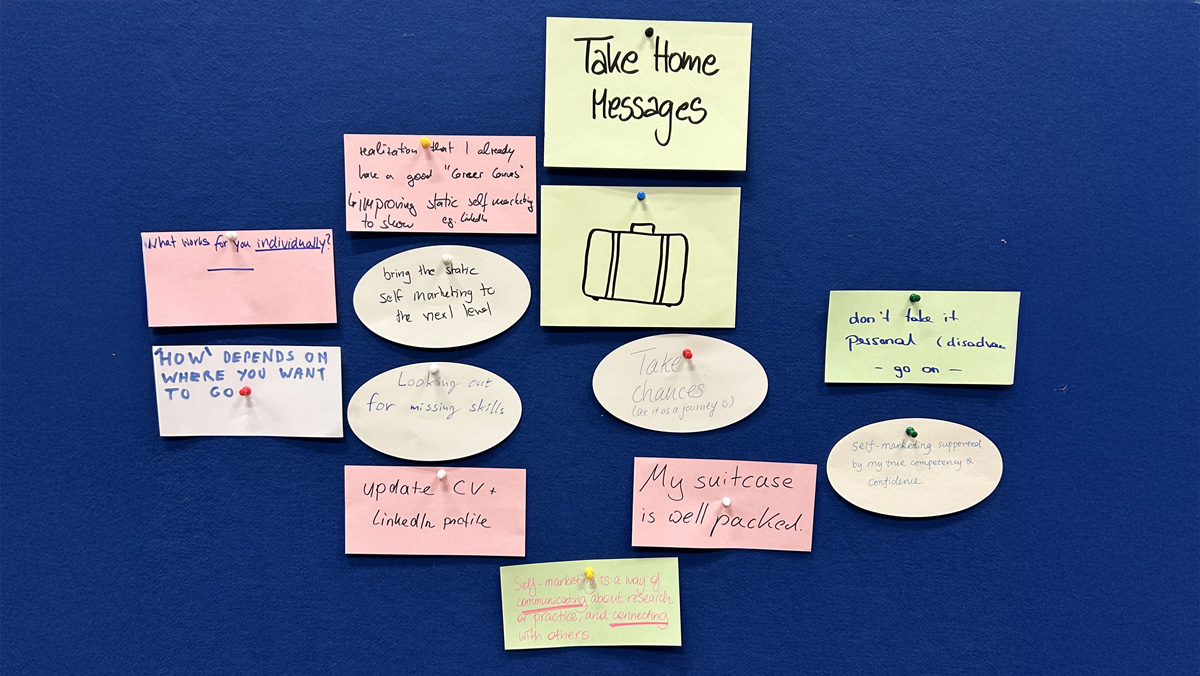 Take Home
Messages
realization that I already
have a good "Career Canvas"
↳ improving static self marketing
to show e.g. LinkedIn
What works for you individually?
bring the static
self marketing to
the next level
"HOW" DEPENDS ON
WHERE YOU WANT
TO GO
Looking out
for missing skills
Take
chances
(see it as a journey ☺)
don't take it
personal (
- go on -
Self-marketing supported
by my true competency &
confidence.
update CV +
LinkedIn profile
My suitcase
is well packed.
Self-marketing is a way of
communicating about research
or practice, and connecting
with others.